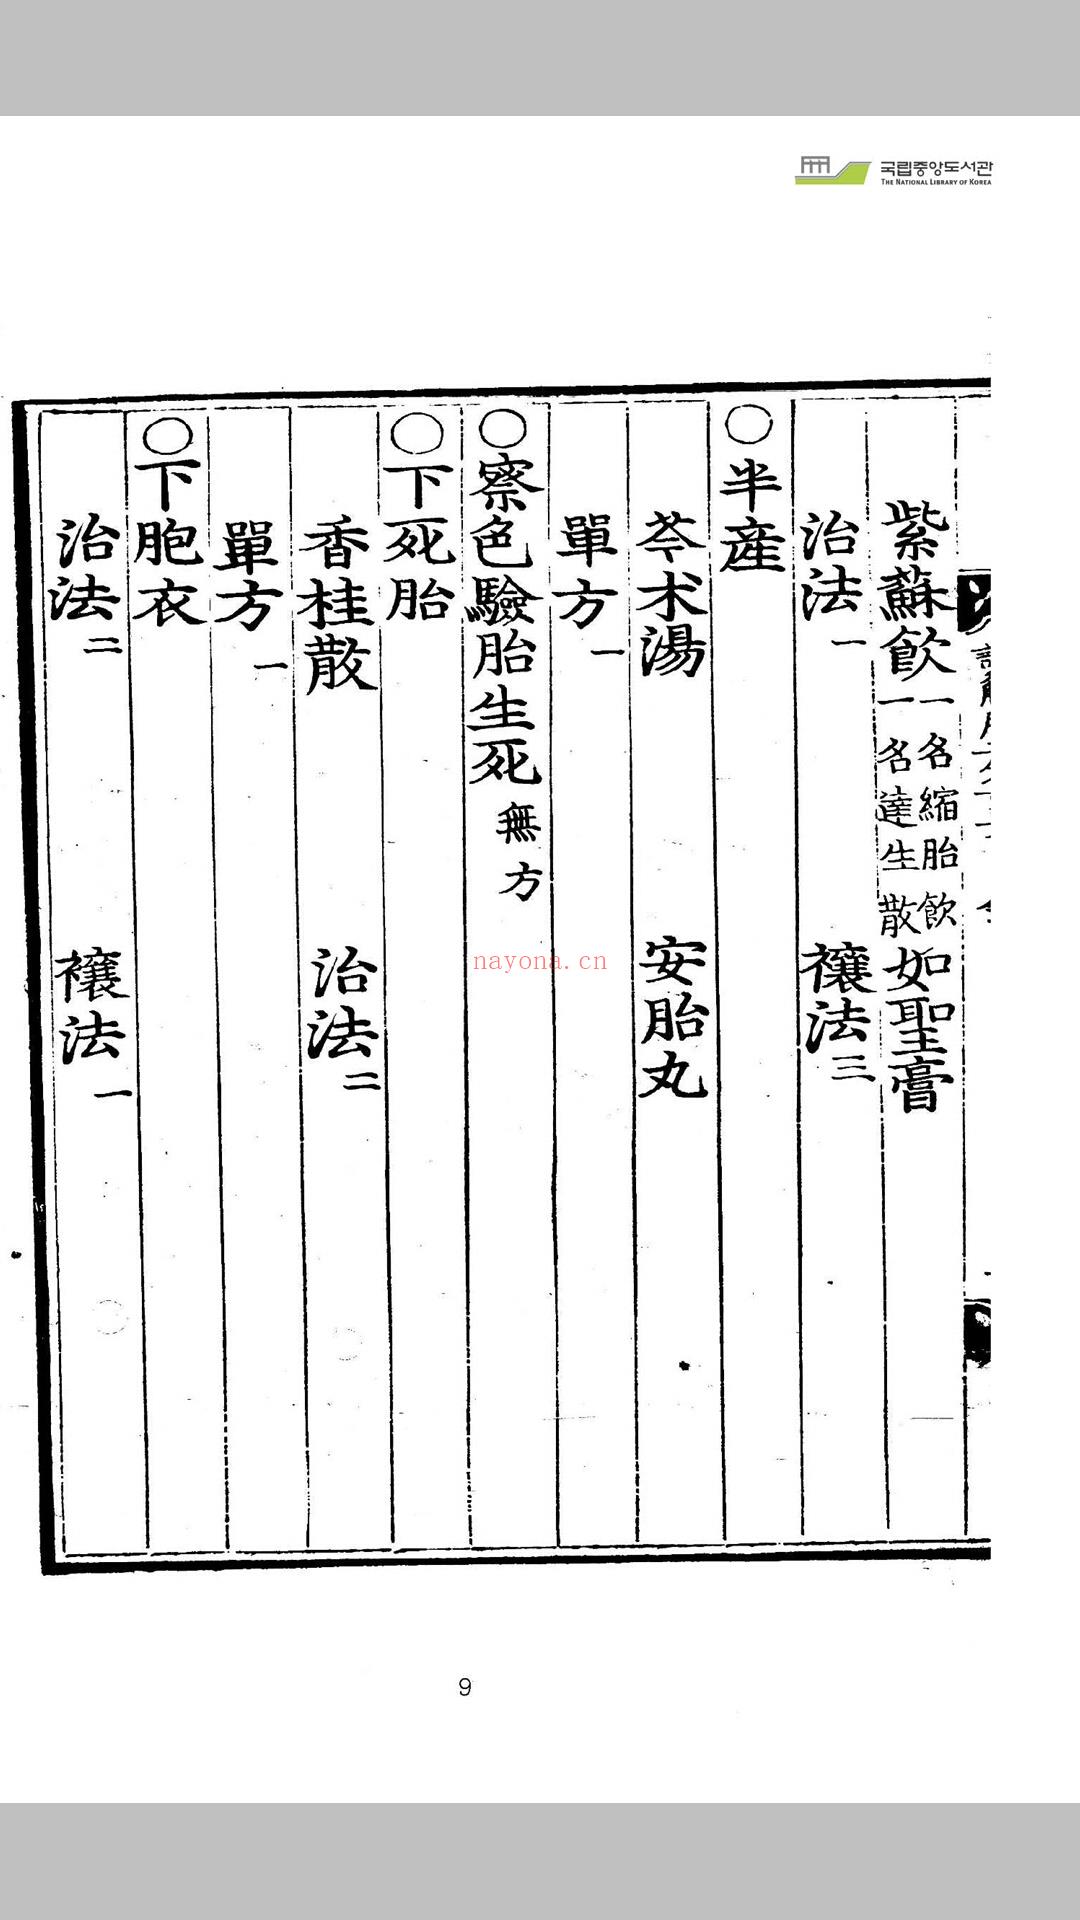 국립중앙도서관
THE NATIONAL LIBRARY OF KOREA
紫蘇飮一名縮胎飮一名達生散 如聖膏
治法一 禳法三
○半産
芩术湯 安胎丸
單方一
○察色驗胎生死無方
○下死胎
香桂散 治法二
單方一
○下胞衣
治法二 禳法一
nayona.cn
9